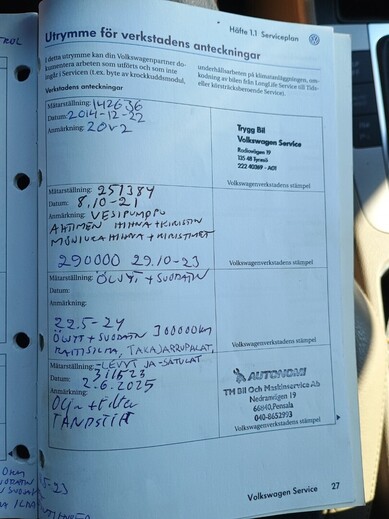 Häfte 1.1 Serviceplan
Utrymme för verkstadens anteckningar
I detta utrymme kan din Volkswagenpartner do-
kumentera arbeten som utförts och som inte
ingår i Servicen (t.ex. byte av krockkuddsmodul,
underhållsarbeten på klimatanläggningen, om-
kodning av bilen från LongLife Service till Tids-
eller körsträckoberoende Service).
Verkstadens anteckningar
Mätarställning: 142636
Datum: 2014-12-22
Anmärkning: 20v2
Trygg Bil
Volkswagen Service
Radiovägen 19
135 48 Tyresö
222 40369 - A01
Volkswagenverkstadens stämpel
Mätarställning: 251384
Datum: 8.10-21
Anmärkning: VESIPUMPPU
HIHNA + KIRISTIN
MONIURAHIHNA + KIRISTIMET
290000 29.10-23
Volkswagenverkstadens stämpel
Mätarställning: ÖLJYT + SUODATIN
Datum:
Anmärkning:
22.5-24
ÖLJYT + SUODATIN 300000KM
RAITISILMA, TAKAJARRUPALAT,
Volkswagenverkstadens stämpel
Mätarställning: -LEVYT JA -SATULAT
Datum: 2.6.2025
Anmärkning:
Olja + filter
TÄNDSTIFT
AUTONOMI
TM Bil Och Maskinservice Ab
Nedranvägen 19
66640, Pensala
040-8652993
Volkswagenverkstadens stämpel
Volkswagen Service 27